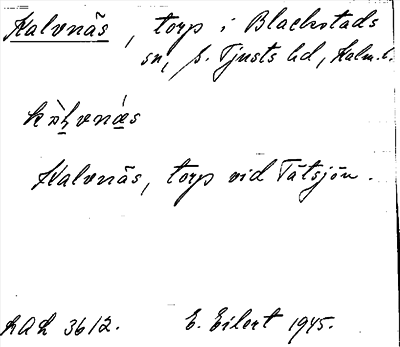 Kalvnäs, torp i Blackstads
sn, s. Tjusts hd, Kalm. l.
Kalvnäs, torp vid Tätsjön.
LAL 3612. E. Eilert 1945.